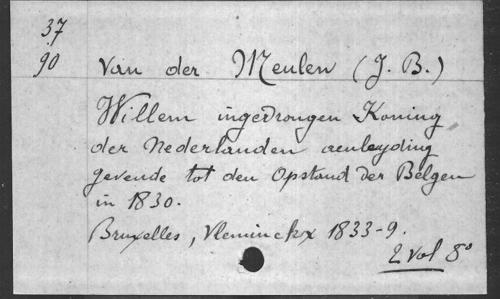 37
90 Van der Meulen (J. B.)
Willem ingedrongen Koning
der Nederlanden aenleyding
gevende tot den Opstand der Belgen
in 1830.
Bruxelles, Vleminckx 1833-9.
2 vol 8°